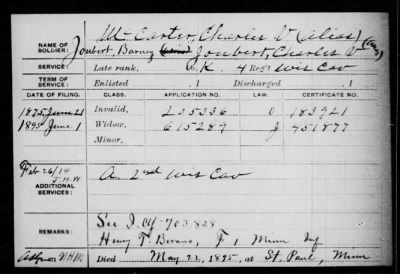 McCarter, Charles V (alias)
NAME OF SOLDIER:
Joubert, Barney Joubert, Charles V
SERVICE:
Late rank, , K, 4 Reg't Wis Cav
TERM OF SERVICE:
Enlisted , 1 Discharged , 1
DATE OF FILING. CLASS. APPLICATION NO. CERTIFICATE NO.
1875 June 21 Invalid, 205336 C 183921
1895 June 1 Widow, 615287 J 451877
Minor,
Feb 26/14
ADDITIONAL SERVICES:
A. 2nd Wis Cav
See J. Ctf 703828
REMARKS:
Henry T. Bevans, F, 1 Minn Inf
Died May 22, 1895, at St. Paul, Minn